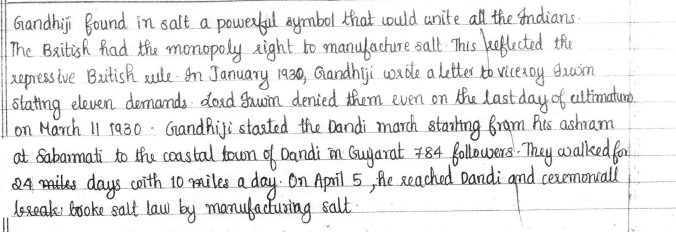 Gandhiji found in salt a powerful symbol that would unite all the Indians.
The British had the monopoly right to manufacture salt. This reflected the
repressive British rule. In January 1930, Gandhiji wrote a letter to viceroy Irwin
stating eleven demands. Lord Irwin denied them even on the last day of ultimatum
on March 11 1930. Gandhiji started the Dandi march starting from his ashram
at Sabarmati to the coastal town of Dandi in Gujarat 784 followers. They walked for
24 miles days with 10 miles a day. On April 5, he reached Dandi and ceremoniall
break booke salt law by manufacturing salt.